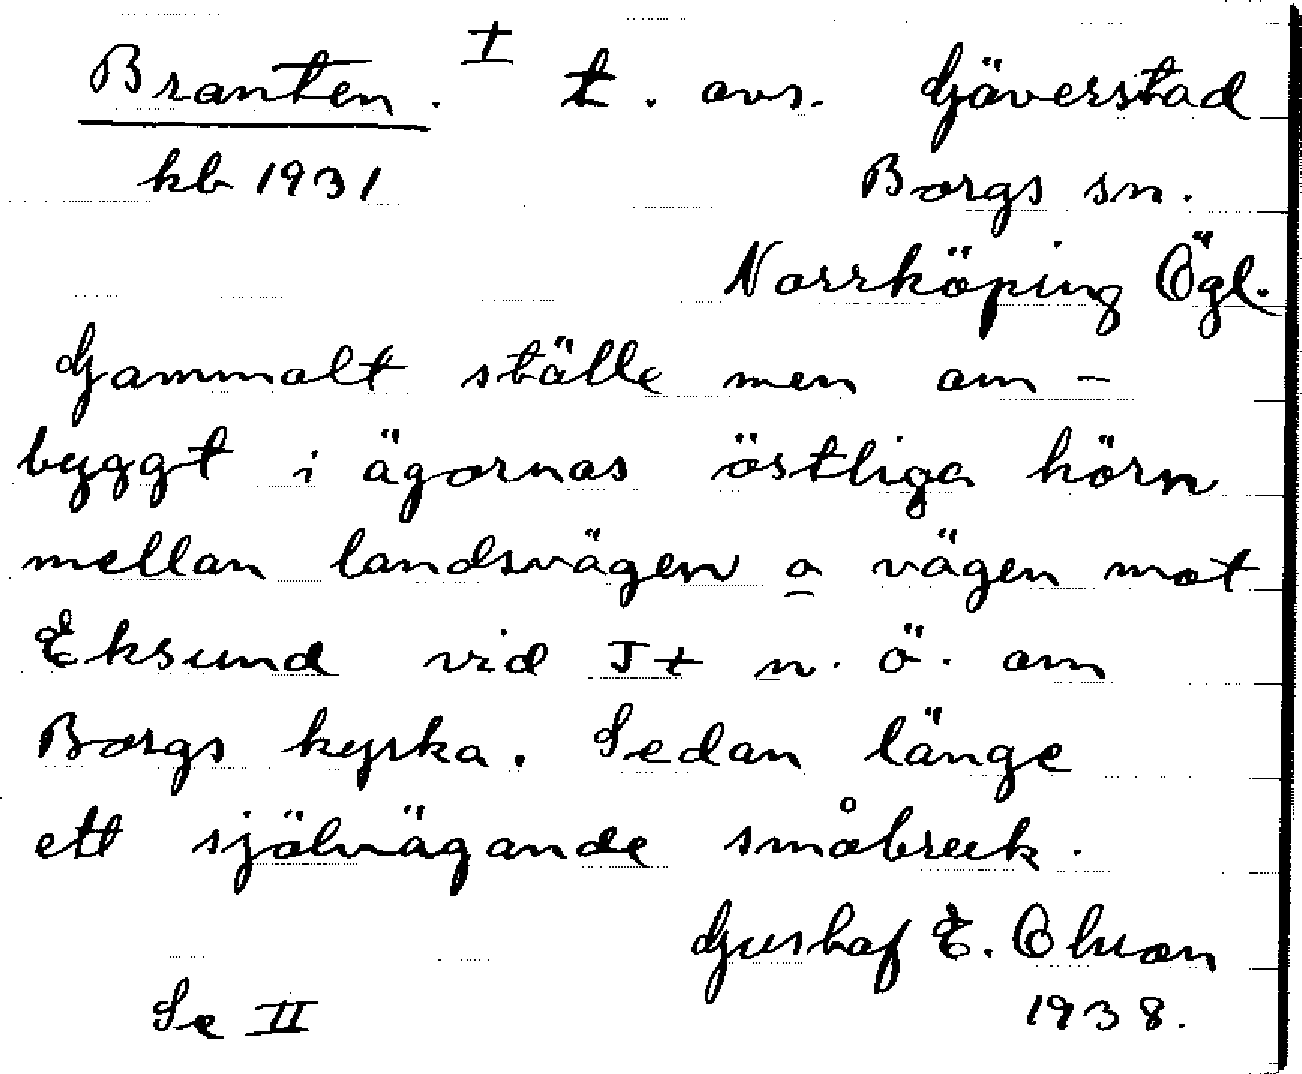 Branten. I t. avs. Gäverstad
kb 1931 Borgs sn.
Norrköping Ögl.
Gammalt ställe men om-
byggt i ägornas östliga hörn
mellan landsvägen o vägen mot
Eksund vid J+ n. ö. om
Borgs kyrka. Sedan länge
ett självägande småbruk.
Gustaf E. Olson
Se II 1938.